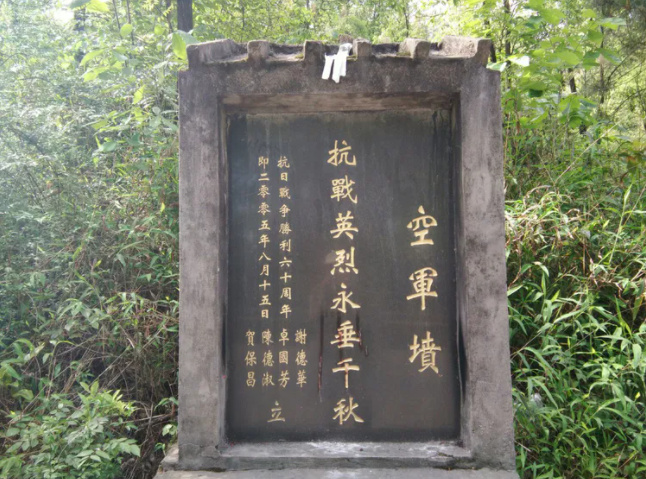 空軍墳
抗戰英烈永垂千秋
抗日戰争勝利六十周年
即二零零五年八月十五日
謝德華
卓國芳
陳德淑
賀保昌
立